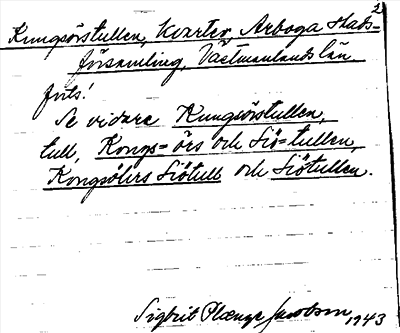 2
Kungsörstullen, kvarter, Arboga Stads=
församling, Västmanlands län
forts!
Se vidare Kungsörstullen,
tull, Kongs=örs och Siö=tullen,
Kongsöhrs Siötull och Siötullen.
Sigbrit Plænge Jacobson, 1943